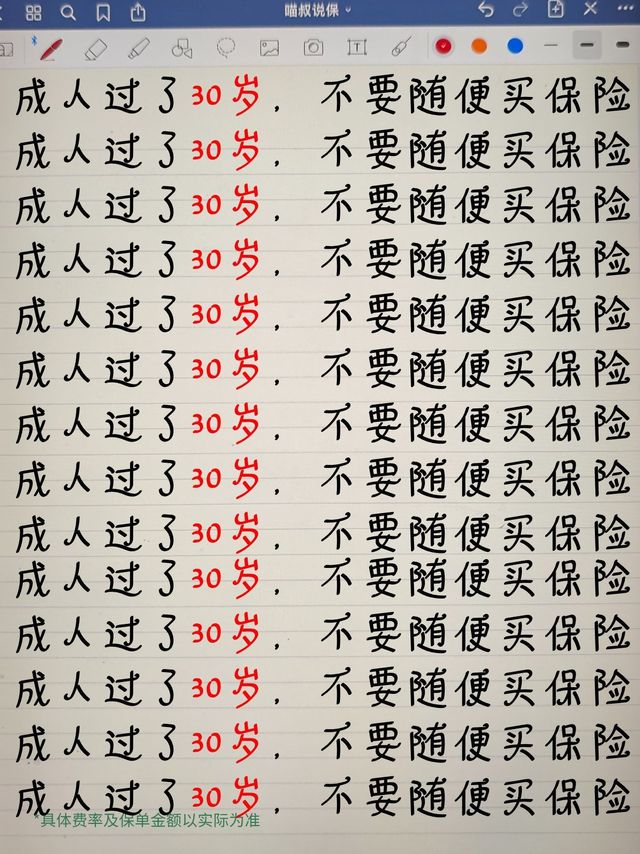 喵叔说保
成人过了30岁，不要随便买保险
成人过了30岁，不要随便买保险
成人过了30岁，不要随便买保险
成人过了30岁，不要随便买保险
成人过了30岁，不要随便买保险
成人过了30岁，不要随便买保险
成人过了30岁，不要随便买保险
成人过了30岁，不要随便买保险
成人过了30岁，不要随便买保险
成人过了30岁，不要随便买保险
成人过了30岁，不要随便买保险
成人过了30岁，不要随便买保险
成人过了30岁，不要随便买保险
成人过了30岁，不要随便买保险
*具体费率及保单金额以实际为准